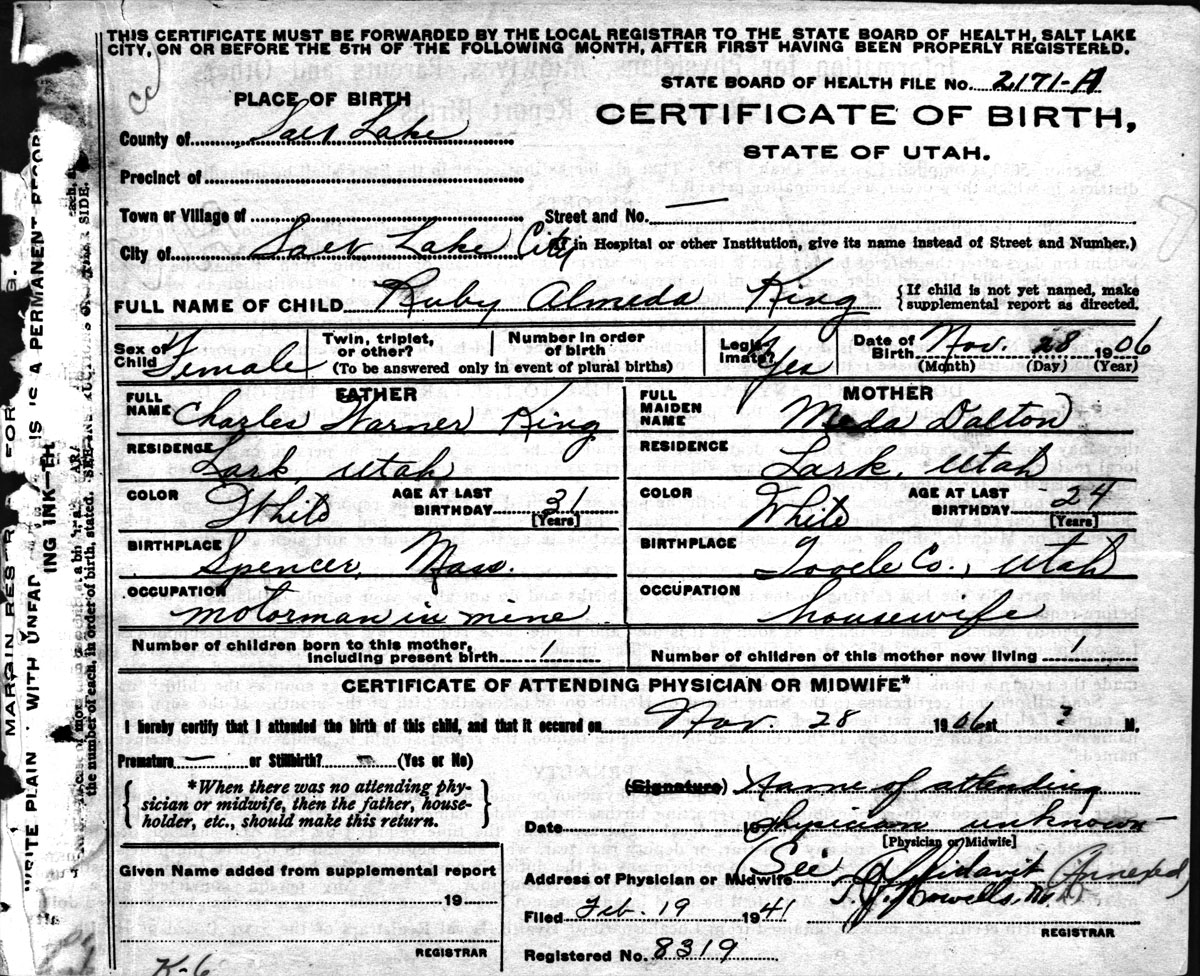 THIS CERTIFICATE MUST BE FORWARDED BY THE LOCAL REGISTRAR TO THE STATE BOARD OF HEALTH, SALT LAKE
CITY, ON OR BEFORE THE 5TH OF THE FOLLOWING MONTH, AFTER FIRST HAVING BEEN PROPERLY REGISTERED.
STATE BOARD OF HEALTH FILE No. 2171-A
PLACE OF BIRTH
CERTIFICATE OF BIRTH,
County of Salt Lake
STATE OF UTAH.
Precinct of
Town or Village of Street and No. —
City of Salt Lake City (If in Hospital or other Institution, give its name instead of Street and Number.)
FULL NAME OF CHILD Ruby Almeda King {If child is not yet named, make
supplemental report as directed.
Sex of Child Female Twin, triplet, or other? Number in order of birth Legitimate? Yes Date of Birth Nov. 28 1906
(To be answered only in event of plural births) (Month) (Day) (Year)
FATHER MOTHER
FULL NAME Charles Warner King FULL MAIDEN NAME Meda Dalton
RESIDENCE Lark, Utah RESIDENCE Lark, Utah
COLOR White AGE AT LAST BIRTHDAY 31 [Years] COLOR White AGE AT LAST BIRTHDAY 24 [Years]
BIRTHPLACE Spencer, Mass. BIRTHPLACE Tooele Co., Utah
OCCUPATION motorman in mine OCCUPATION housewife
Number of children born to this mother, including present birth 1 Number of children of this mother now living 1
CERTIFICATE OF ATTENDING PHYSICIAN OR MIDWIFE*
I hereby certify that I attended the birth of this child, and that it occured on Nov. 28 1906 at ? M.
Premature — or Stillbirth? — (Yes or No)
{*When there was no attending phy-
sician or midwife, then the father, house-
holder, etc., should make this return.}
(Signature) Name of attending
Date 19 physician unknown
[Physician or Midwife]
Given Name added from supplemental report
19
REGISTRAR
Address of Physician or Midwife (See Affidavit Annexed)
Filed Feb. 19 1941
REGISTRAR
Registered No. 8319
K-6
WITH UNFAD
ING INK
IS A PERMANENT RECOR
the number of each, in order of birth, stated.